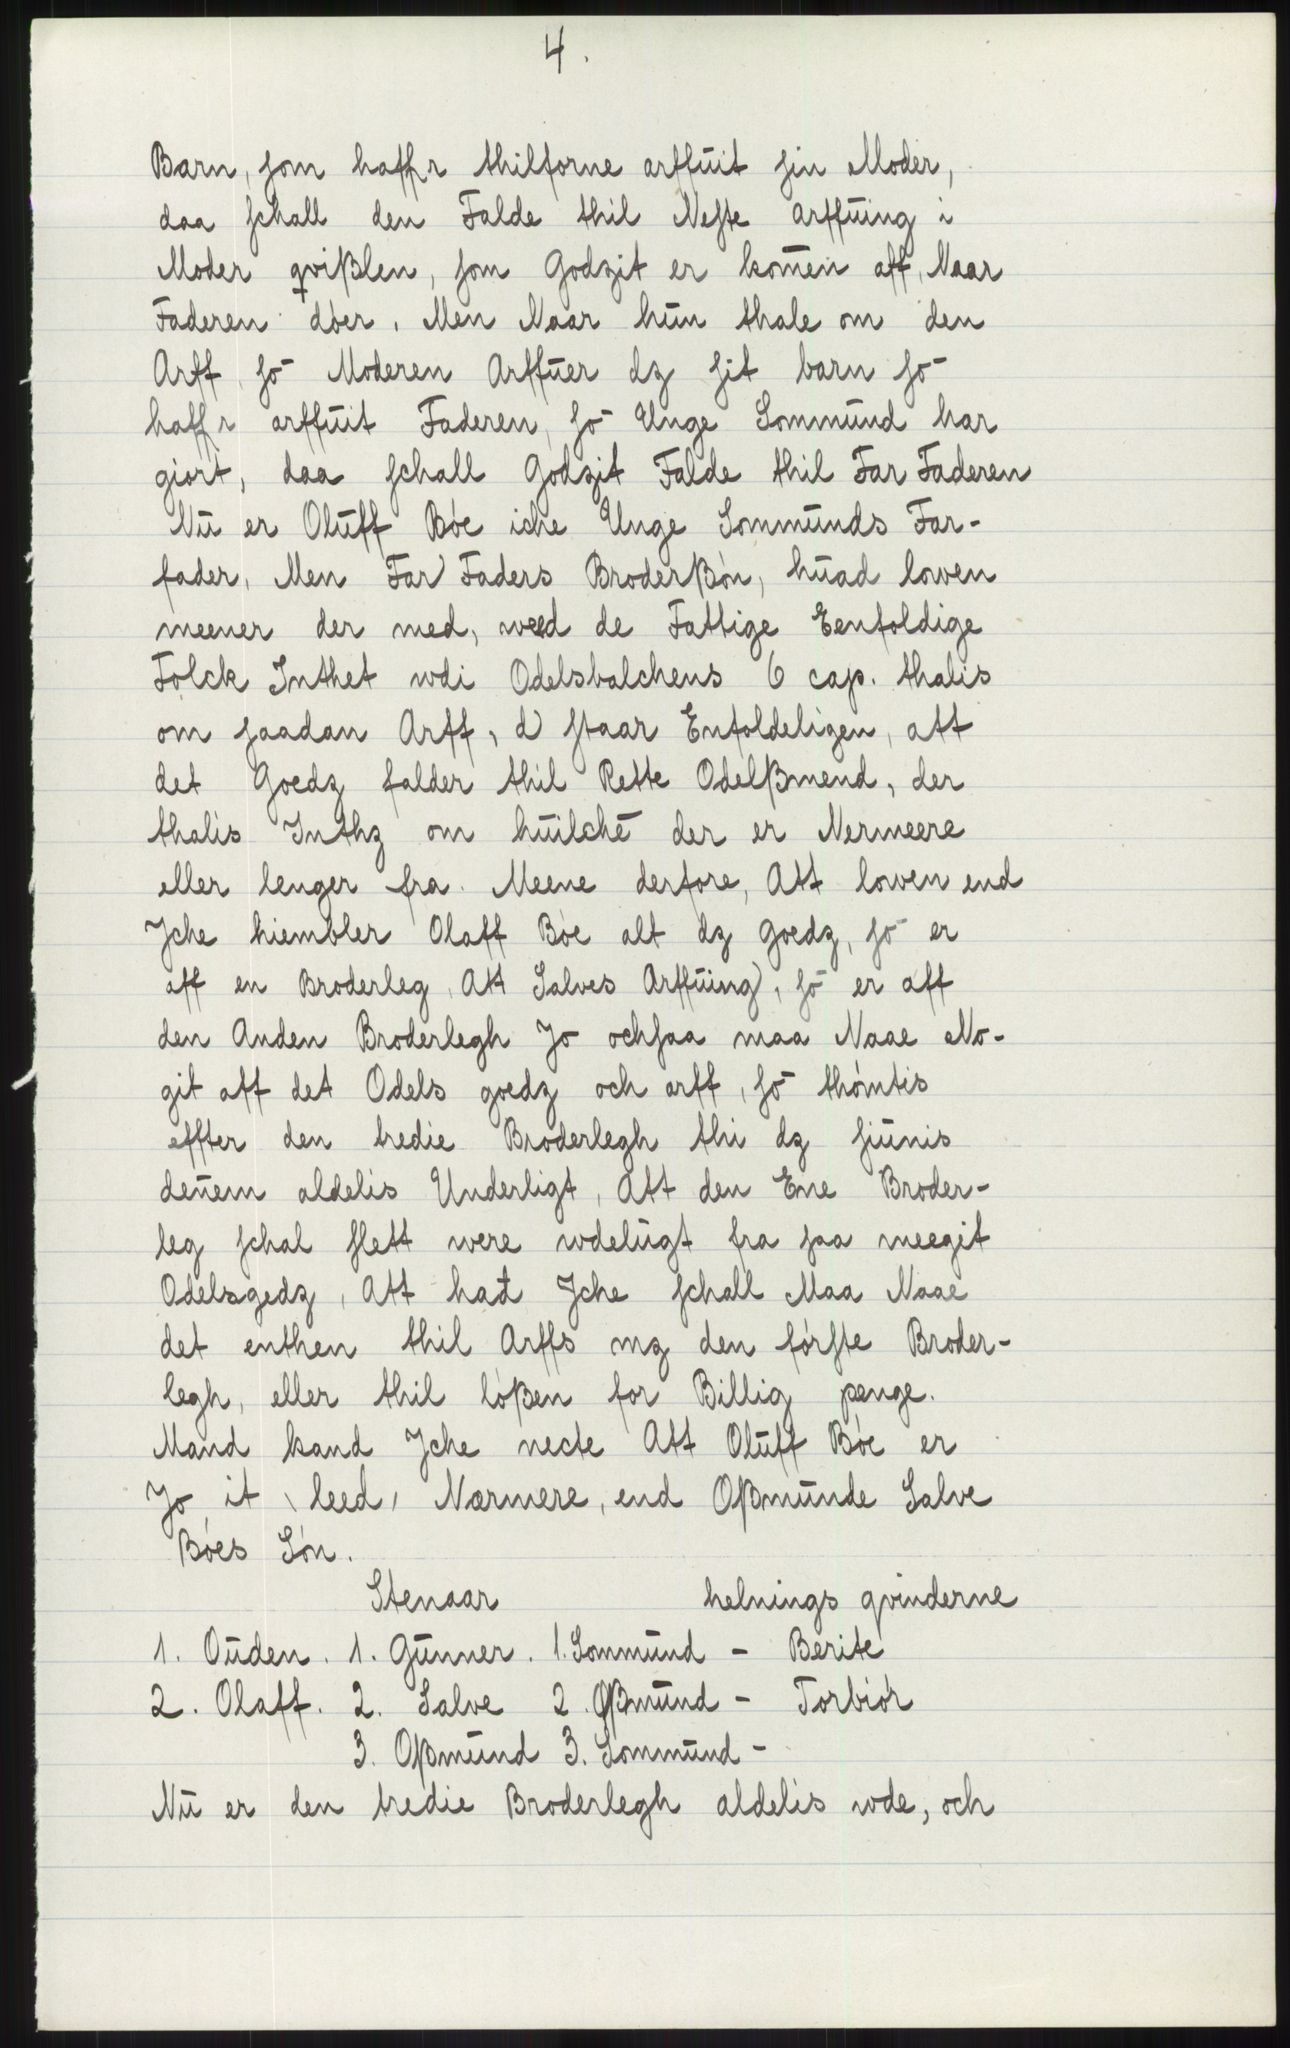 4.
Barn, som haffr thilforne arffuit sin Moder,
daa schall den Falde thil Neste arffuing i
Moder qvißlen, som Godzit er komen aff, Naar
Faderen döer. Men Naar hun thale om den
Arff, so Moderen Arffuer dz sit barn so
haffr arffuit Faderen, so Unge Sommund har
giort, daa schall Godzit Falde thil Far Faderen
Nu er Oluff Böe iche Unge Sommunds Far-
fader, Men Far Faders Broderßön, huad lowen
meener der med, weed de Fattige Eenfoldige
Folck Inthet wdi Odelsbalchens 6 cap. thalis
om saadan Arff, d staar Enfoldeligen, att
det Goedz falder thil Rette Odelßmend, der
thalis Inthz om huilche der er Nermeere
eller lenger fra. Meene derfore, Att lowen end
Iche hiembler Olaff Böe alt dz goedz, so er
aff en Broderleg, Att Salves Arffuing, so er aff
den Anden Broderlegh Jo ochsaa maa Naae No-
git aff det Odels goedz och arff, so thömtis
effter den tredie Broderlegh thi dz siunis
denem aldelis Underligt, Att den Ene Broder-
leg schal slett were wdelugt fra saa meegit
Odelsgedz, Att had Iche schall Maa Naae
det enthen thil Arffs mz den förste Broder-
legh, eller thil lößen for Billig penge.
Mand kand Iche necte Att Oluff Böe er
Jo it leed, Nærmere, end Oßmunde Salve
Böes Sön.
Stenaar helnings qvinderne
1. Ouden. 1. Gunner. 1. Sommund - Berite
2. Olaff. 2. Salve 2. Oßmund - Torbiör
3. Oßmund 3. Sommund -
Nu er den tredie Broderlegh aldelis wde, och